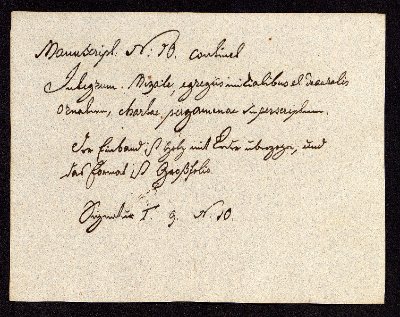 Manuscript. N: 10. continet
Integrum Missale, egregiis initialibus et deauratis
ornatum, chartae pergamenae superscriptum.
Der Einband ist Holz mit Leder überzogen, und
das Format ist Großfolio
Signatur I. g. N. 10